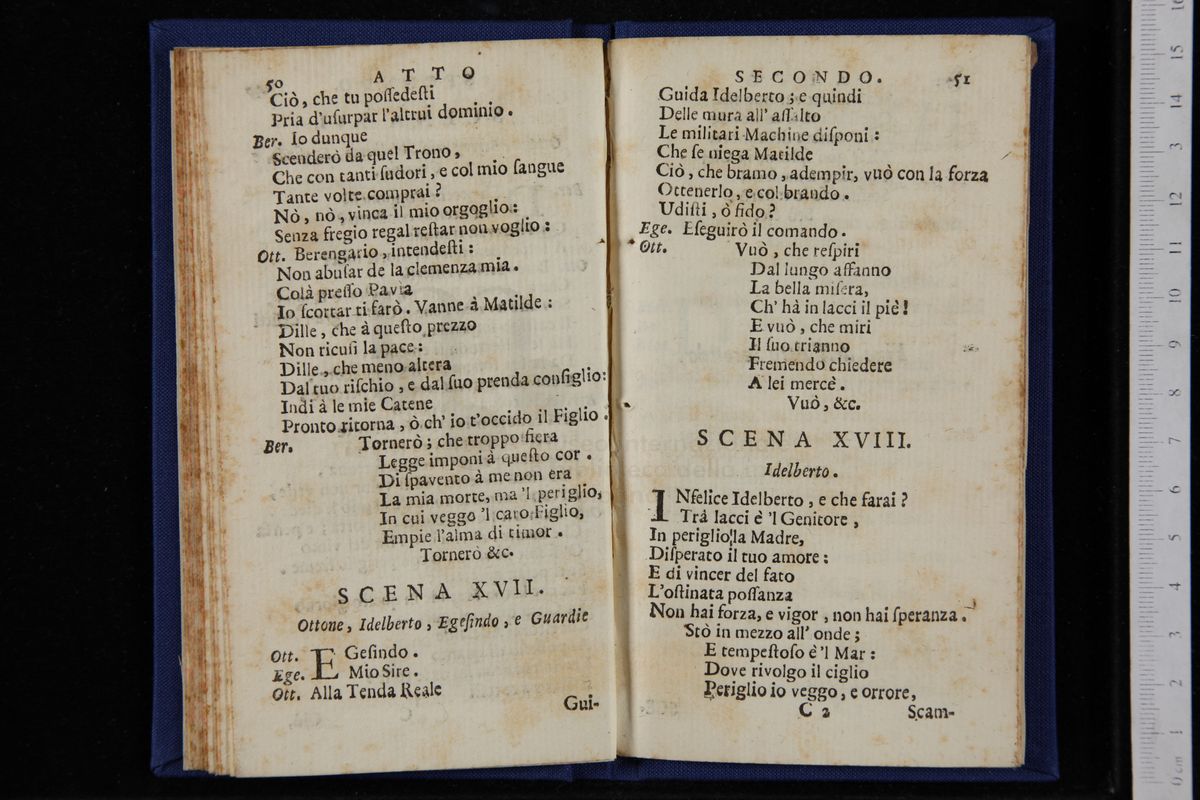 50 ATTO
Ciò, che tu poſſedeſti
Pria d'uſurpar l'altrui dominio.
Ber. Io dunque
Scenderò da quel Trono,
Che con tanti ſudori, e col mio ſangue
Tante volte comprai?
Nò, nò, vinca il mio orgoglio:
Senza fregio regal reſtar non voglio:
Ott. Berengario, intendeſti:
Non abuſar de la clemenza mia.
Colà preſſo Pavia
Io ſcortar ti farò. Vanne à Matilde:
Dille, che à queſto prezzo
Non ricuſi la pace:
Dille, che meno altera
Dal tuo riſchio, e dal ſuo prenda conſiglio:
Indi à le mie Catene
Pronto ritorna, ò ch' io t'occido il Figlio.
Ber. Tornerò; che troppo fiera
Legge imponi à queſto cor.
Di ſpavento à me non era
La mia morte, ma 'l periglio,
In cui veggo 'l caro Figlio,
Empie l'alma di timor.
Tornerò &c.
SCENA XVII.
Ottone, Idelberto, Egeſindo, e Guardie
Ott. EGeſindo.
Ege. Mio Sire.
Ott. Alla Tenda Reale
Gui-
SECONDO. 51
Guida Idelberto; e quindi
Delle mura all' aſſalto
Le militari Machine diſponi:
Che ſe niega Matilde
Ciò, che bramo, adempir, vuò con la forza
Ottenerlo, e col brando.
Udiſti, ò fido?
Ege. Eſeguirò il comando.
Ott. Vuò, che reſpiri
Dal lungo affanno
La bella miſera,
Ch' hà in lacci il piè!
E vuò, che miri
Il ſuo trianno
Fremendo chiedere
A lei mercè.
Vuò, &c.
SCENA XVIII.
Idelberto.
INfelice Idelberto, e che farai?
Trà lacci è 'l Genitore,
In periglio la Madre,
Diſperato il tuo amore:
E di vincer del fato
L'oſtinata poſſanza
Non hai forza, e vigor, non hai ſperanza.
Stò in mezzo all' onde;
E tempeſtoſo è 'l Mar:
Dove rivolgo il ciglio
Periglio io veggo, e orrore,
C 2 Scam-